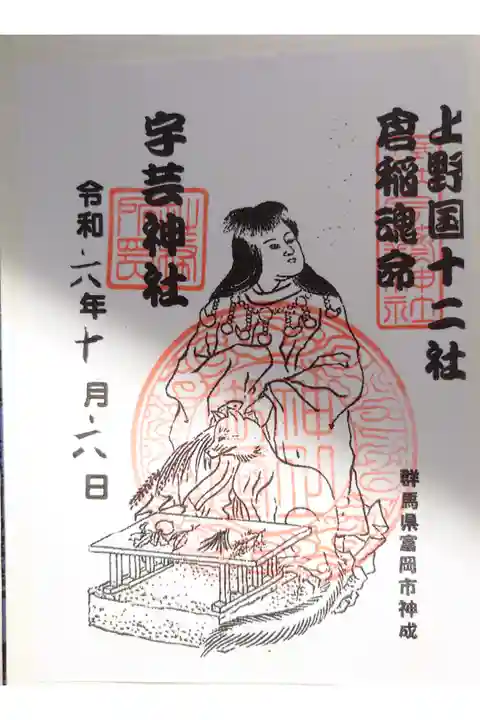 上野国十二社
倉稲魂命
群馬県富岡市神成
宇芸神社
令和六年十月六日